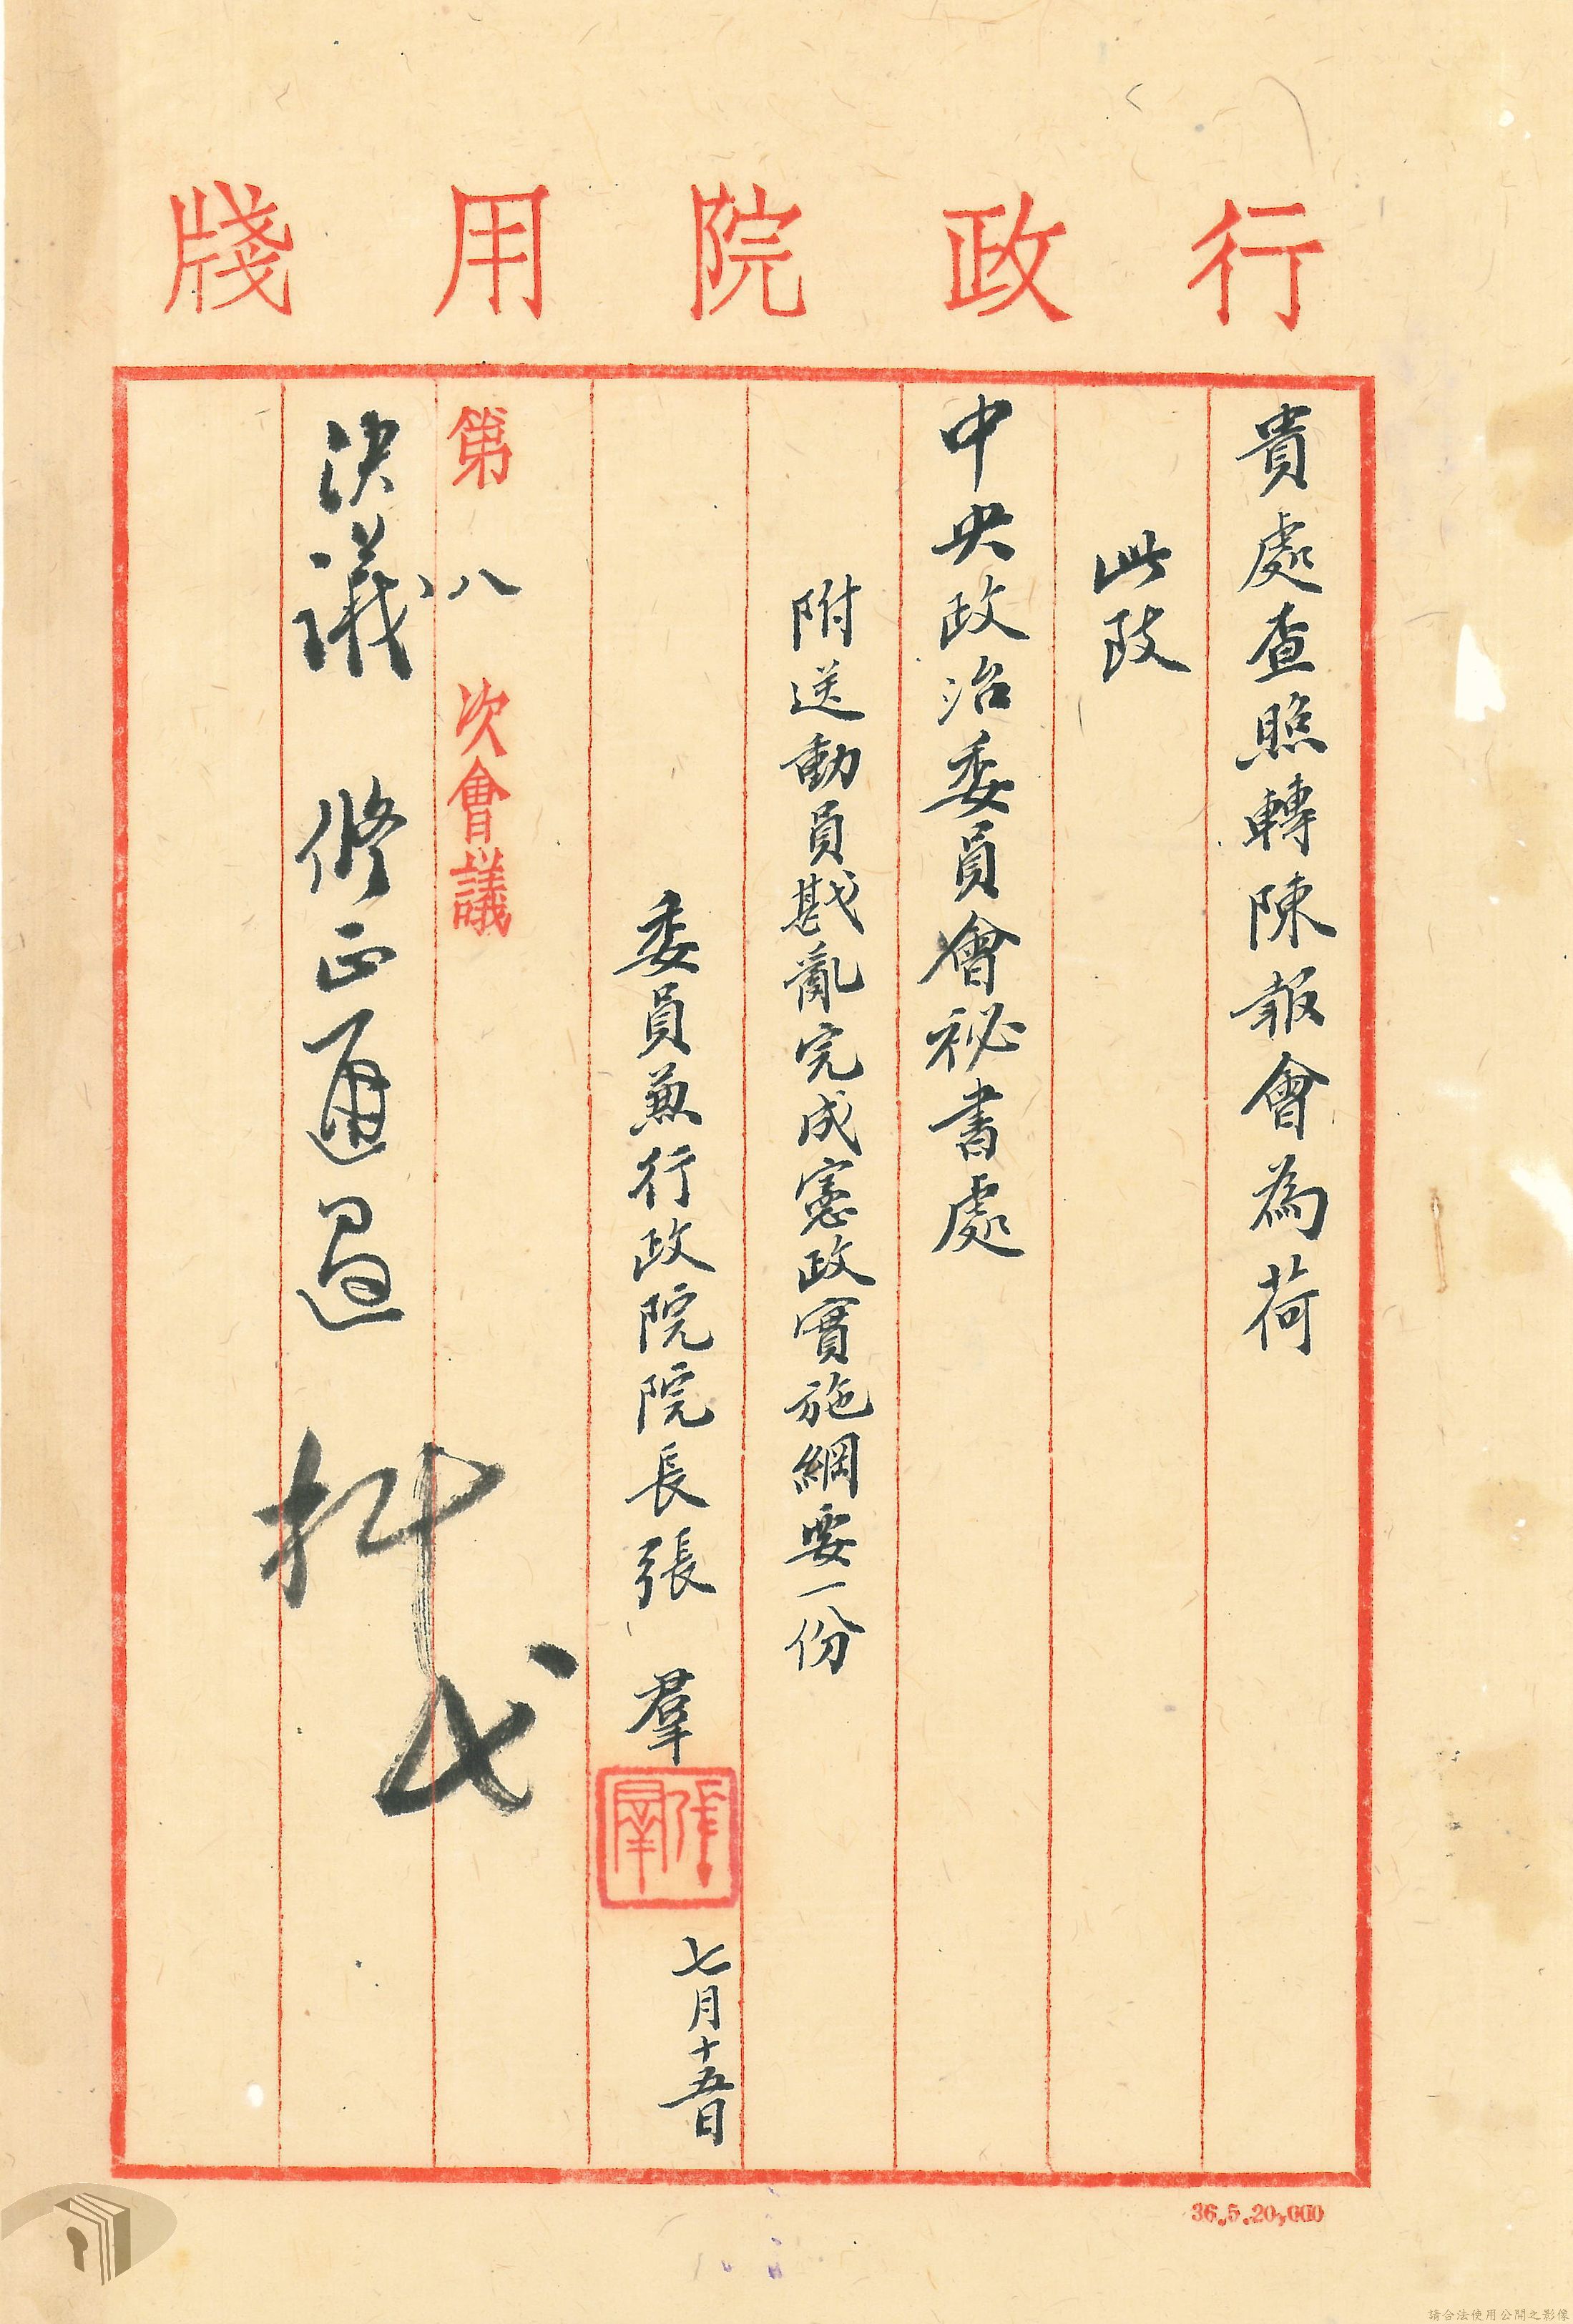 行政院用牋
貴處查照轉陳報會為荷
此致
中央政治委員會秘書處
附送動員戡亂完成憲政實施綱要一份
委員兼行政院院長張 羣
張羣
七月十五日
第八次會議
決議 修正通過
36.5.20,000
請合法使用公開之影像